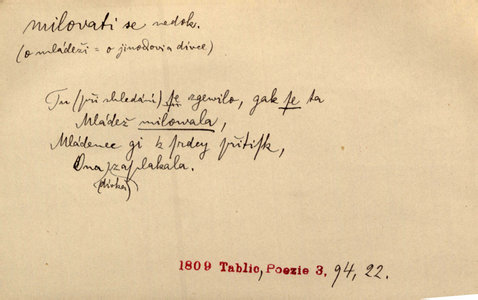 milovati se nedok.
(o mládeži = o jinochovi a dívce)
Tu (při shledání) se zgewilo, gak se ta
Mládež milowala,
Mládenec gi k srdcy přitisk,
Ona zaplakala.
(dívka)
1809 Tablic, Poezie 3, 94, 22.